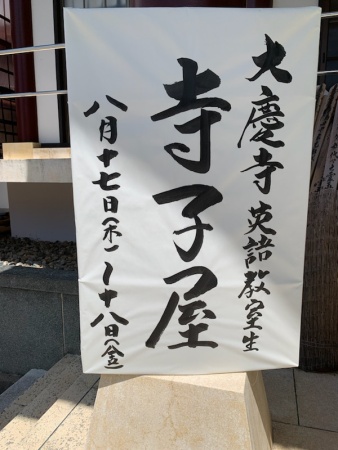 大慶寺 英語教室生
寺子屋
八月十七日(木)〜十八日(金)